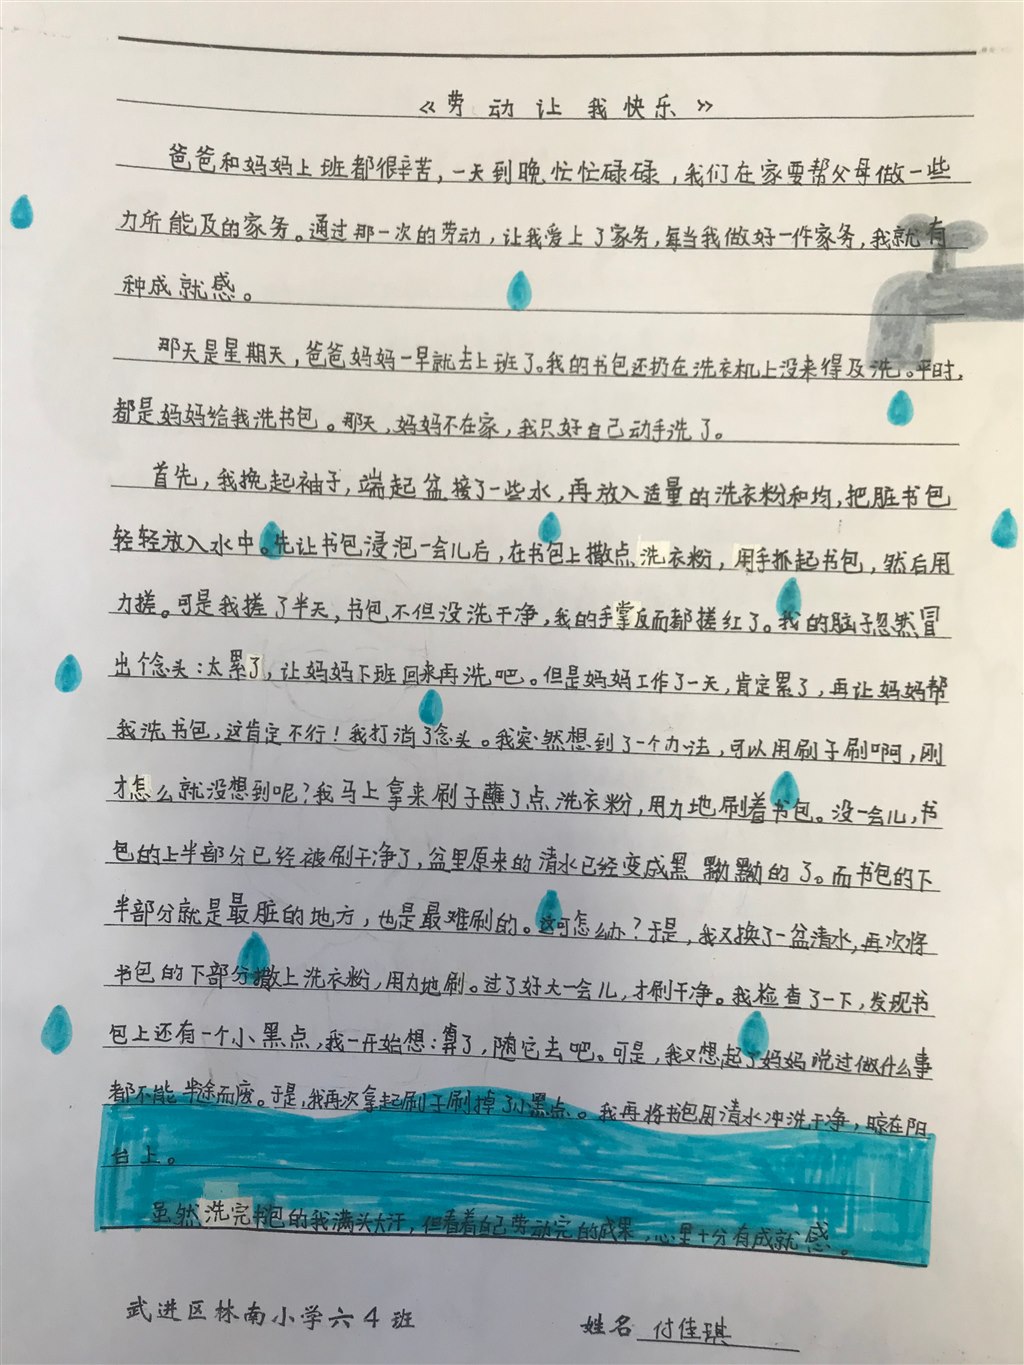 《劳动让我快乐》
爸爸和妈妈上班都很辛苦，一天到晚忙忙碌碌，我们在家要帮父母做一些
力所能及的家务。通过那一次的劳动，让我爱上了家务，每当我做好一件家务，我就有
种成就感。
那天是星期天，爸爸妈妈一早就去上班了。我的书包还扔在洗衣机上没来得及洗。平时，
都是妈妈给我洗书包。那天，妈妈不在家，我只好自己动手洗了。
首先，我挽起袖子，端起盆接了一些水，再放入适量的洗衣粉和均，把脏书包
轻轻放入水中。先让书包浸泡一会儿后，在书包上撒点洗衣粉，用手抓起书包，然后用
力搓。可是我搓了半天，书包不但没洗干净，我的手掌反而都搓红了。我的脑子忽然冒
出个念头：太累了，让妈妈下班回来再洗吧。但是妈妈工作了一天，肯定累了，再让妈妈帮
我洗书包，这肯定不行！我打消了念头。我突然想到了一个办法，可以用刷子刷啊，刚
才怎么就没想到呢？我马上拿来刷子蘸了点洗衣粉，用力地刷着书包。没一会儿，书
包的上半部分已经被刷干净了，盆里原来的清水已经变成黑黝黝的了。而书包的下
半部分就是最脏的地方，也是最难刷的。这可怎么办？于是，我又换了一盆清水，再次将
书包的下部分撒上洗衣粉，用力地刷。过了好大一会儿，才刷干净。我检查了一下，发现书
包上还有一个小黑点，我一开始想：算了，随它去吧。可是，我又想起了妈妈说过做什么事
都不能半途而废。于是，我再次拿起刷子刷掉了小黑点。我再将书包用清水冲洗干净，晾在阳
台上。
虽然洗完书包的我满头大汗，但看着自己劳动完的成果，心里十分有成就感。
武进区林南小学六4班 姓名 付佳琪